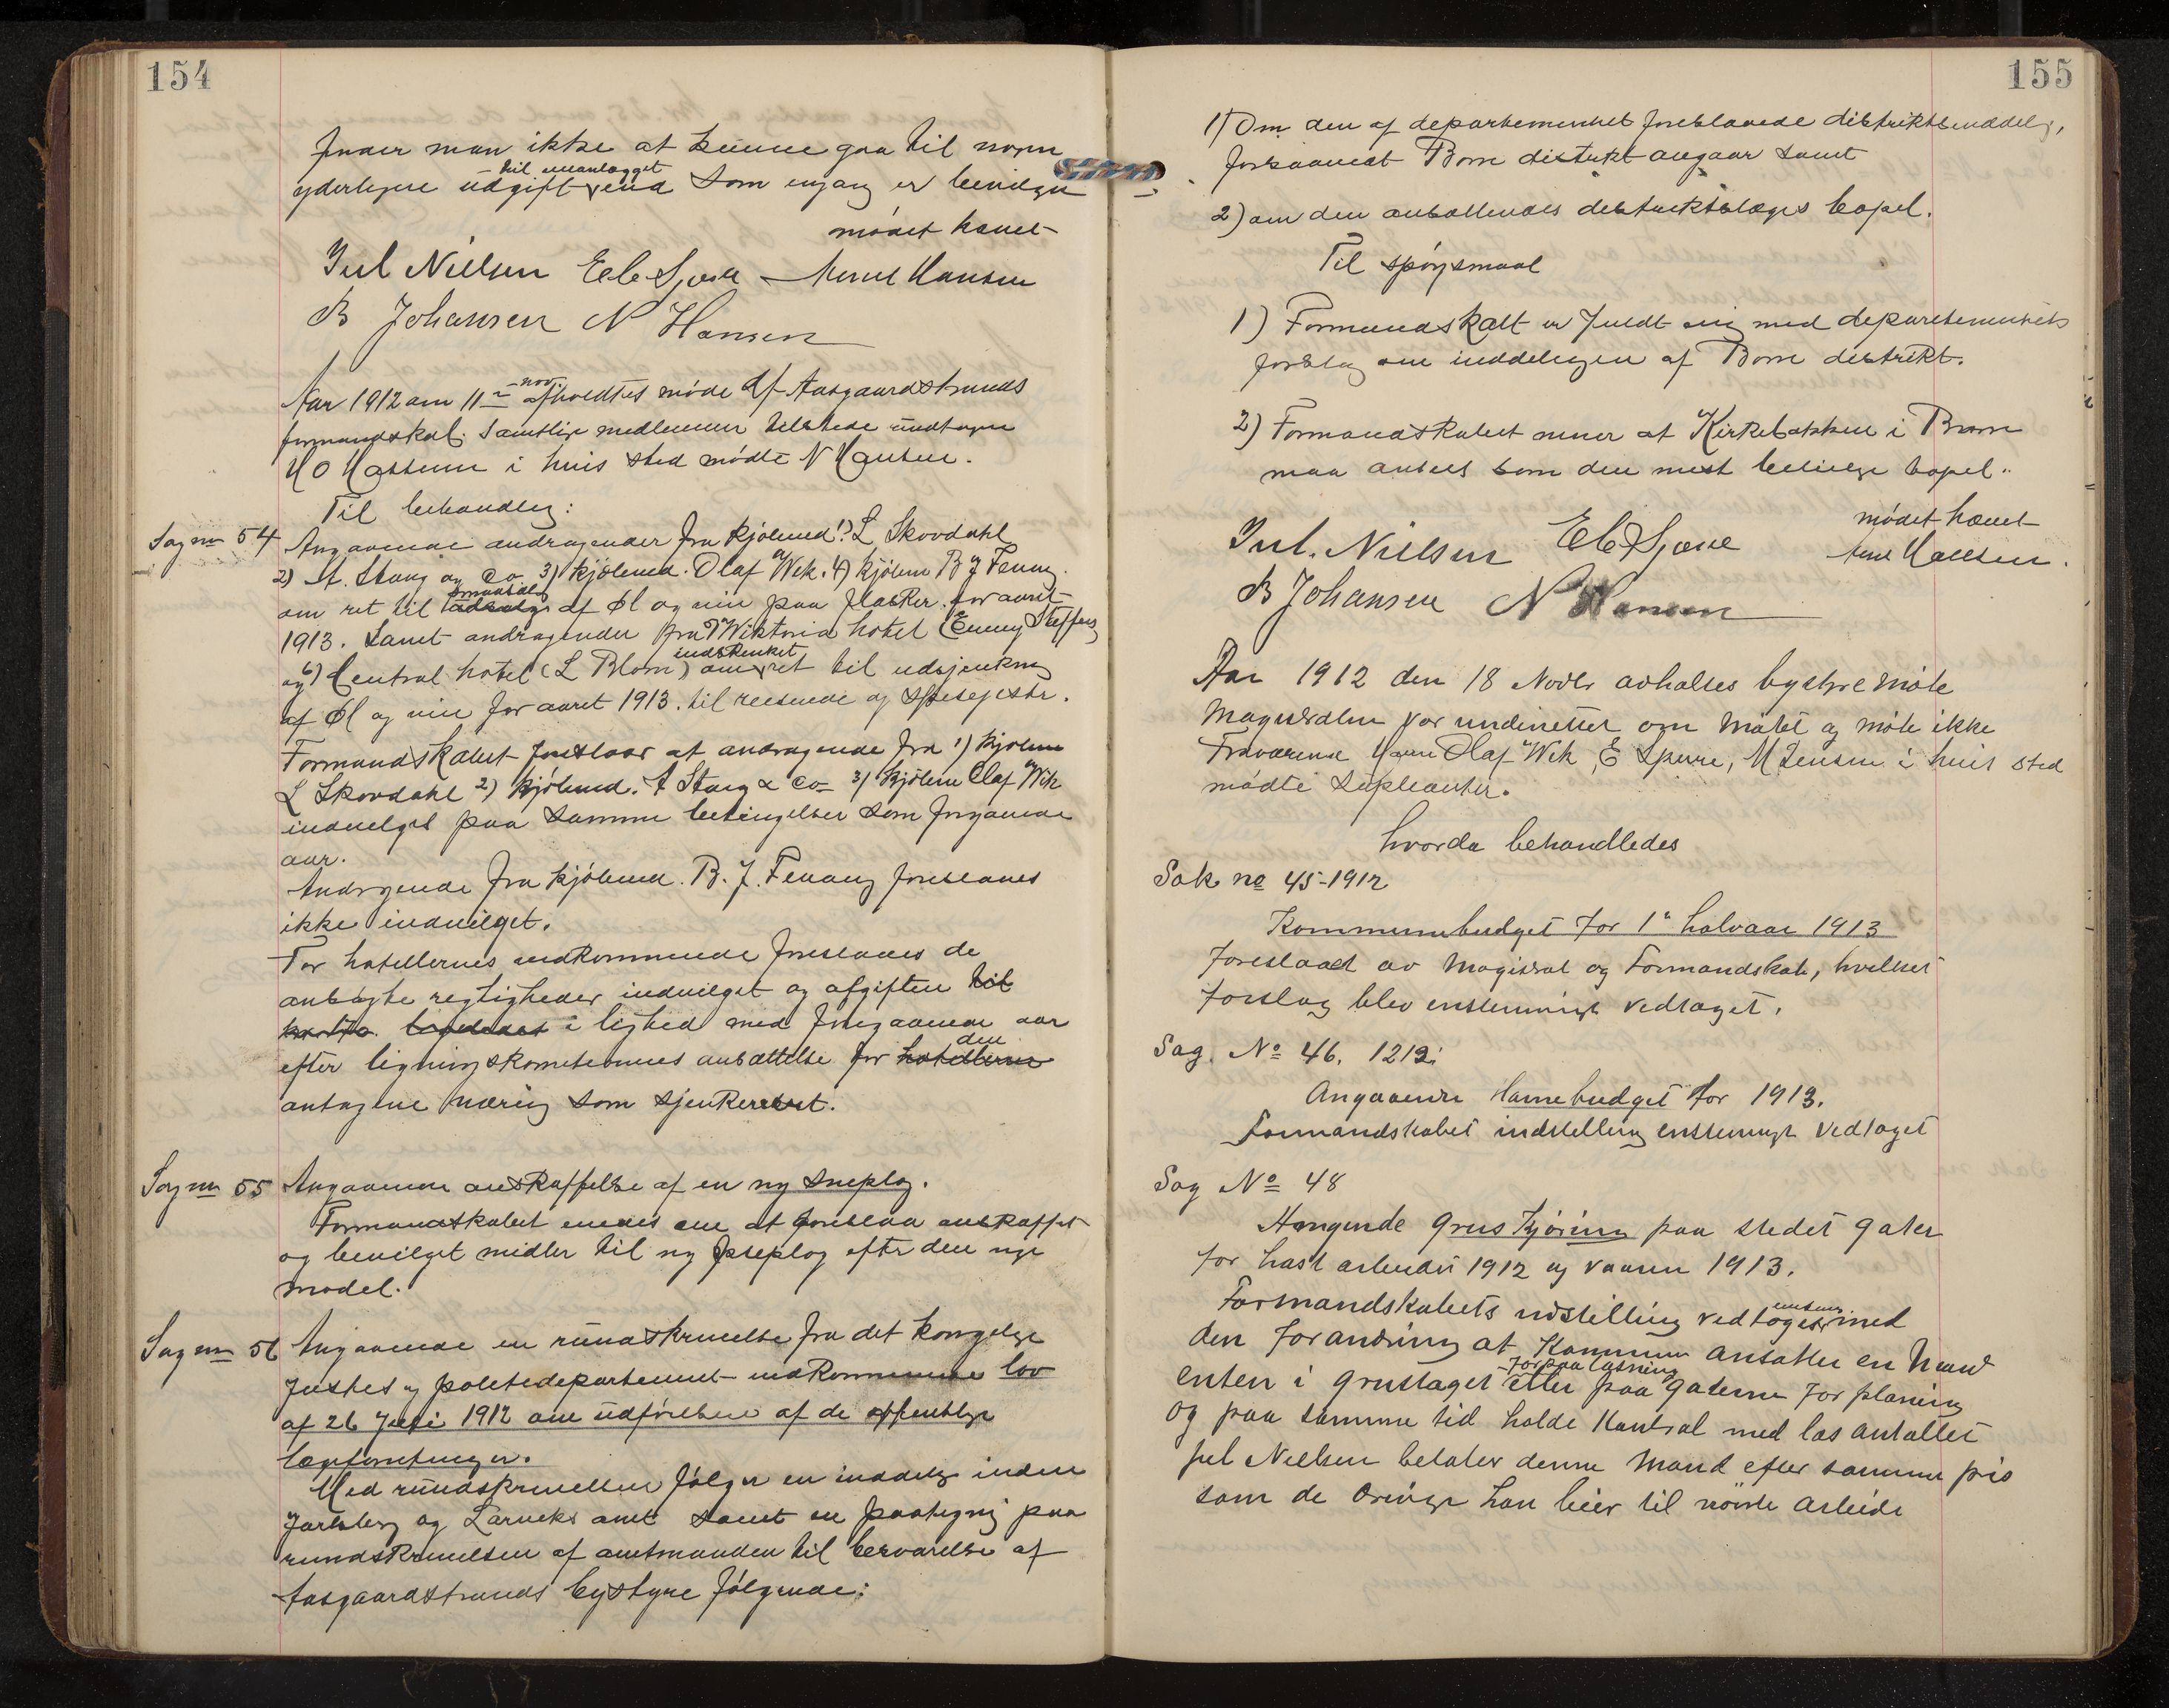 154
finder man ikke at kunne gaa til nogen
yderligere udgift til anlægget end som engang er bevilget
mødet hævet
Jul Nielsen Eb Sjøve Arnt Hansen
B Johansen N Hansen
Aar 1912 am 11te nov afholdtes møde af Aasgaardstrands
formandskab. Samtlige medlemmer tilstede undtagen
H O i hvis sted mødte N Hansen.
Til behandling:
Sag no 54 Angaaende andragender fra kjøbmd 1) L Skovdahl
2) A. Stang og Co 3) kjøbmd. Olaf Wik. 4) kjøbm B J Fevang.
om ret til udsalg smaasalg af Øl og vin paa flasker for aaret
1913. Samt andragender fra 5) Wiktoria hotel (Emmy Steffens)
og 6) Central hotel (L Blom) om indskrenket ret til udsjenkning
af Øl og vin for aaret 1913. til reisende og spisegjester.
Formandskabet foreslaar at andragende fra 1) kjøbm
L Skovdahl 2) kjøbmd. A Stang & Co 3) kjøbm Olaf Wik
indvilget paa samme betingelser som foregaaende
aar.
Andragende fra kjøbmd. B. J. Fevang foreslaaes
ikke indvilget.
For hotellernes vedkommende foreslaaes de
ansøgte rettigheder indvilget og afgiften til
i lighed med foregaaende aar
efter ligningskommissionens ansættelse for hotellerne den
antagne næring som sjenkeret.
Sag no 55 Angaaende anskaffelse af en ny sneplog.
Formandskabet enedes om at foreslaa anskaffet
og bevilget midler til ny sneplog efter den nye
model.
Sag no 56 Angaaende en rundskrivelse fra det kongelige
Justis og politidepartement vedkommende lov
af 26 Juli 1912 om udførelsen af de offentlige
lægeforretninger.
Med rundskrivelsen følger en inddeling inden
Jarlsberg og Larviks amt samt en paategning paa
rundskrivelsen af amtmanden til besvarelse af
Aasgaardstrands bystyre følgende:
155
1) Om den af departementet foreslaaede distriktsinddeling,
forsaavidt Borre distrikt angaar samt
2) om den ansættendes distriktslæges bopel.
Til spørgsmaal
1) Formandskabt er fuldt enig med departementets
forslag om inddelingen af Borre distrikt.
2) Formandskabet mener at Kirkebakken i Borre
maa ansees som den mest beleilige bopel.
mødet hævet
Jul. Nielsen Eb Sjøve Arnt Hansen.
B Johansen N Hansen
Aar 1912 den 18 Novbr avholtes bystyremøte
Magistraten var underrettet om møtet og møte ikke
Fraværende Herrer Olaf Wik, E Sperre, M Jensen i hvis sted
mødte supleanter.
hvorda behandledes
Sak no 45-1912
Kommunebudget for 1ste halvaar 1913
foreslaaet av Magistrat og Formandskab, hvilket
forslag blev enstemmigt vedtaget.
Sag. No 46. 1212.
Angaaende Havnebudget for 1913.
Formandskabet indstilling enstemmigt vedtaget
Sag No 48
Angaaende gruskjøring paa stedet gater
for høst arbeidet 1912 og vaaren 1913.
Formandskabets indstilling vedtoges enstem. med
den forandring at Kommunen ansætter en Mand
enten i grustaget for paalæsning eller paa gaterne for planing
og paa samme tid holde kontrol med læs antallet
Jul Nielsen betaler denne Mand efter samme pris
som de øvrige han leier til nævnte arbeide